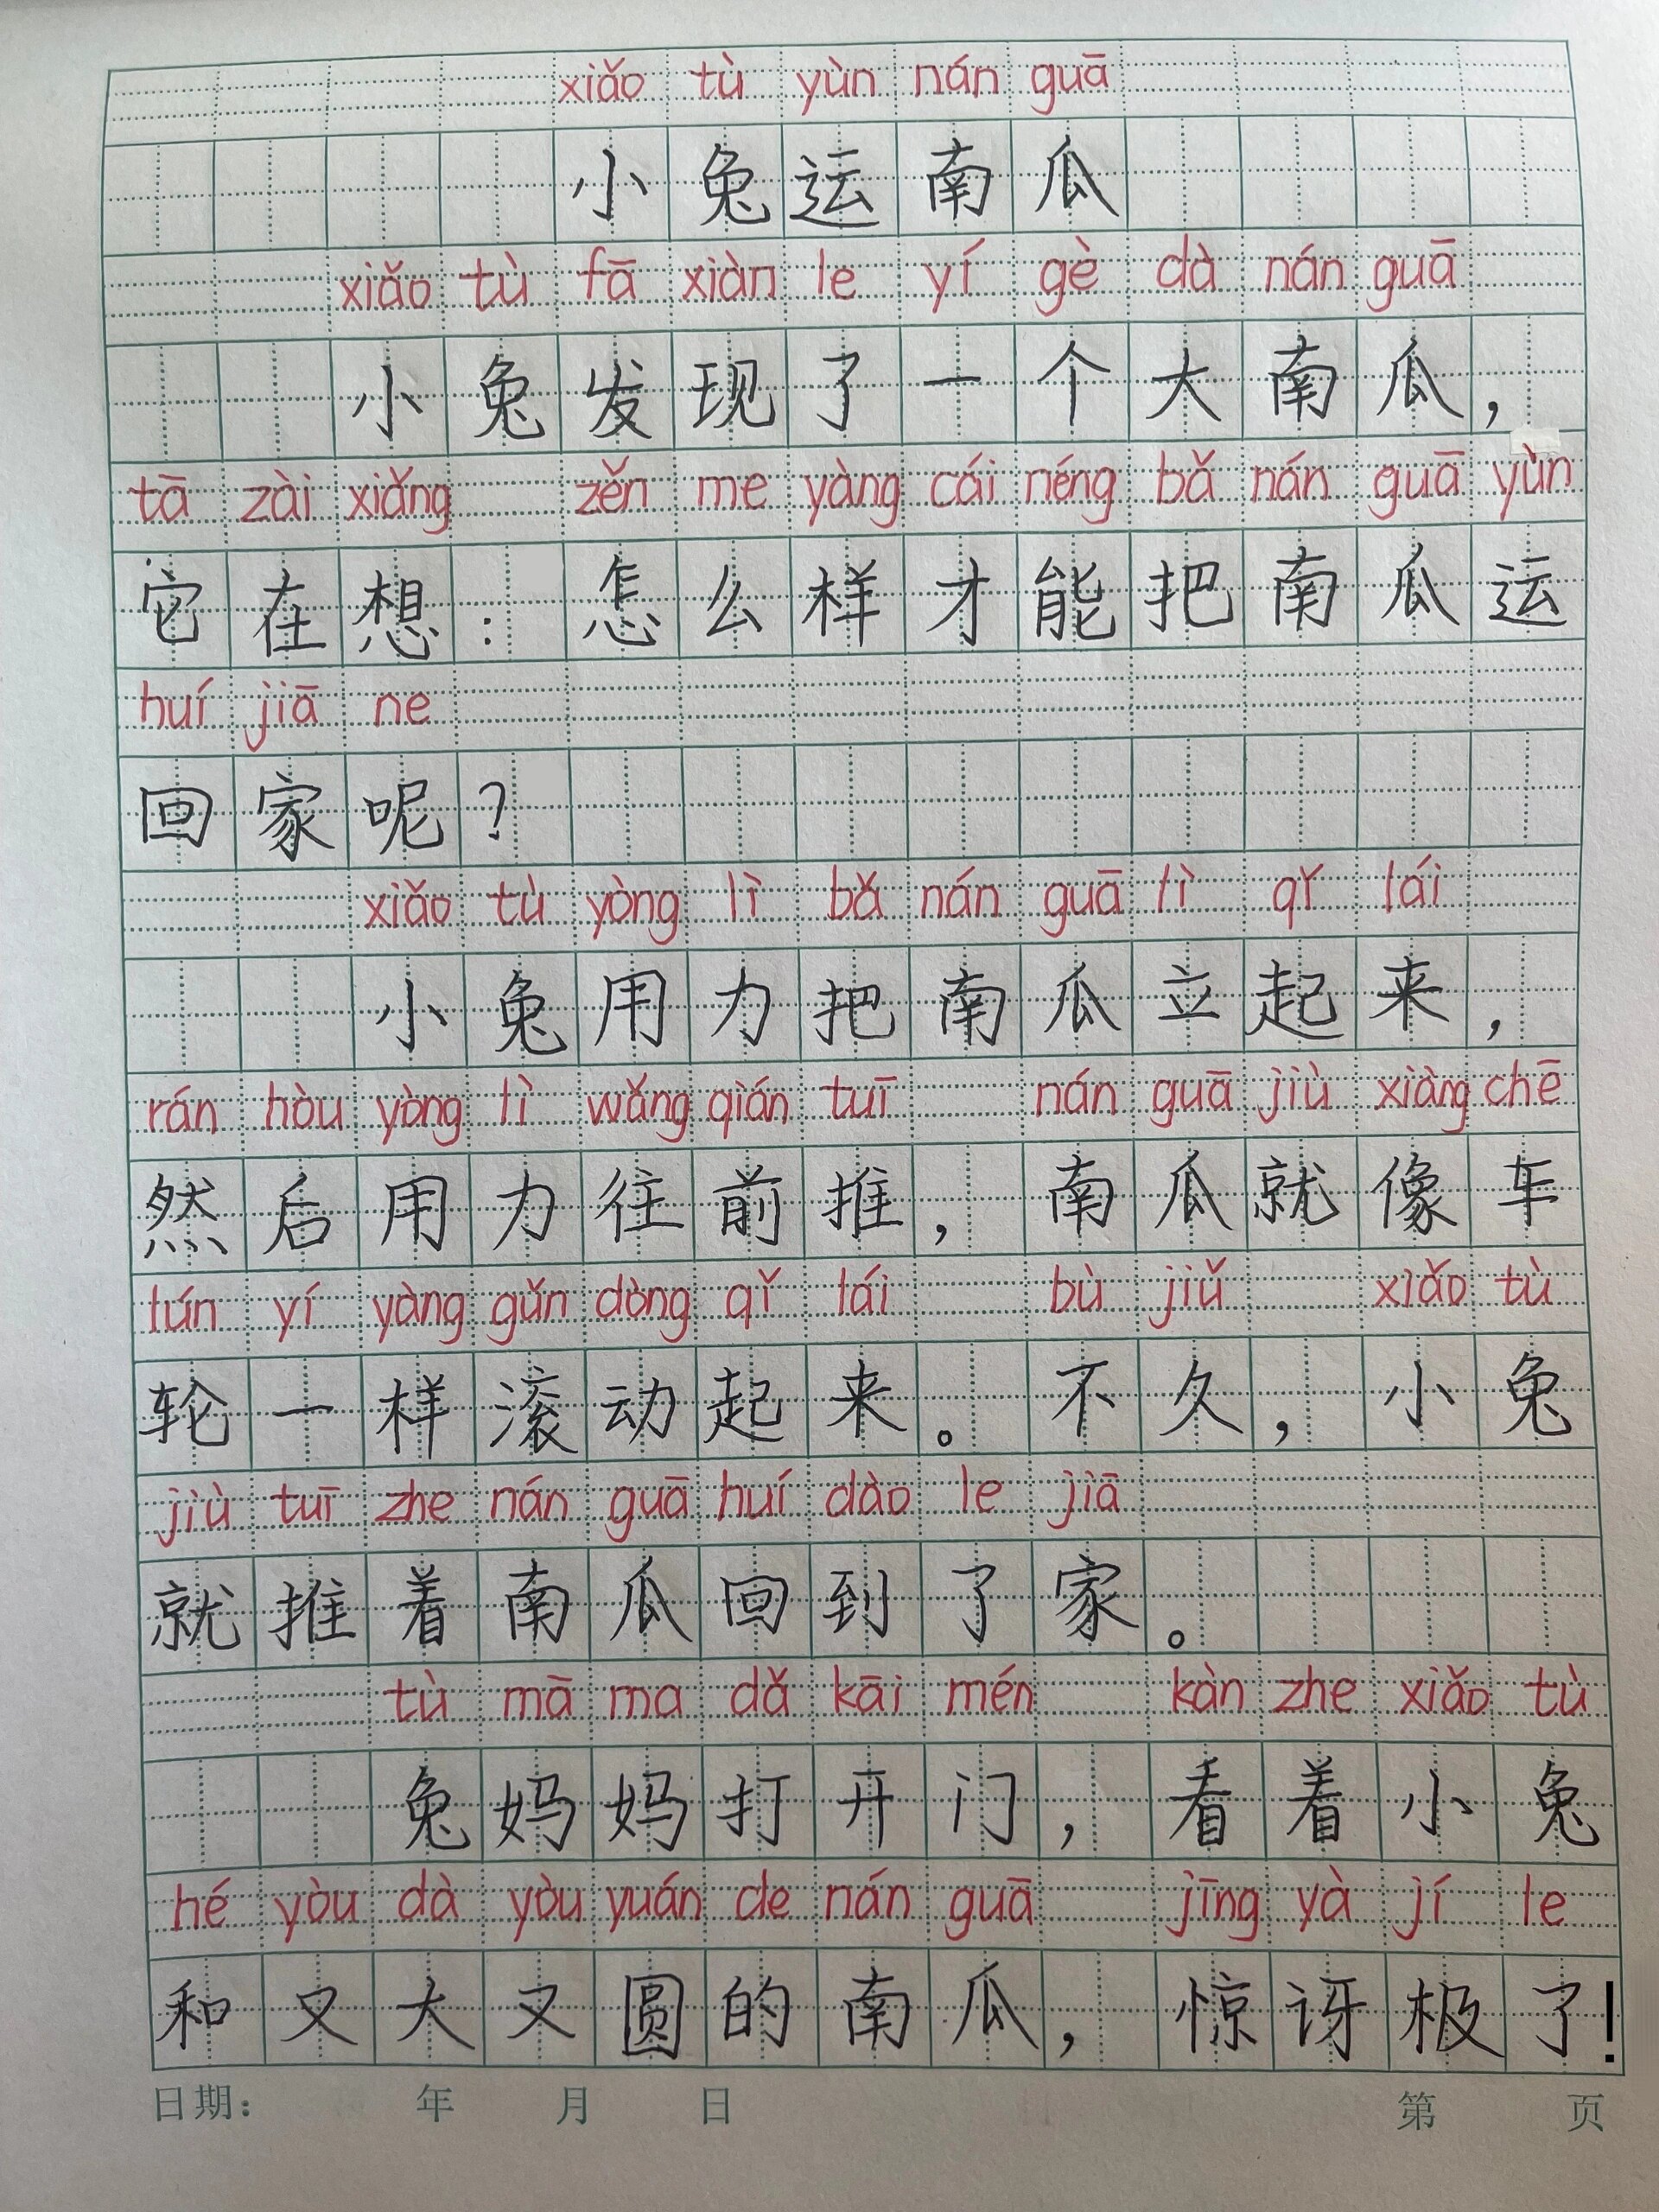 xiǎo tù yùn nán guā
小兔运南瓜
xiǎo tù fā xiàn le yí gè dà nán guā
小兔发现了一个大南瓜，
tā zài xiǎng zěn me yàng cái néng bǎ nán guā yùn
它在想：怎么样才能把南瓜运
huí jiā ne
回家呢？
xiǎo tù yòng lì bǎ nán guā lì qǐ lái
小兔用力把南瓜立起来，
rán hòu yòng lì wǎng qián tuī nán guā jiù xiàng chē
然后用力往前推，南瓜就像车
lún yí yàng gǔn dòng qǐ lái bù jiǔ xiǎo tù
轮一样滚动起来。不久，小兔
jiù tuī zhe nán guā huí dào le jiā
就推着南瓜回到了家。
tù mā ma dǎ kāi mén kàn zhe xiǎo tù
兔妈妈打开门，看着小兔
hé yòu dà yòu yuán de nán guā jīng yà jí le
和又大又圆的南瓜，惊讶极了！
日期： 年 月 日 第 页